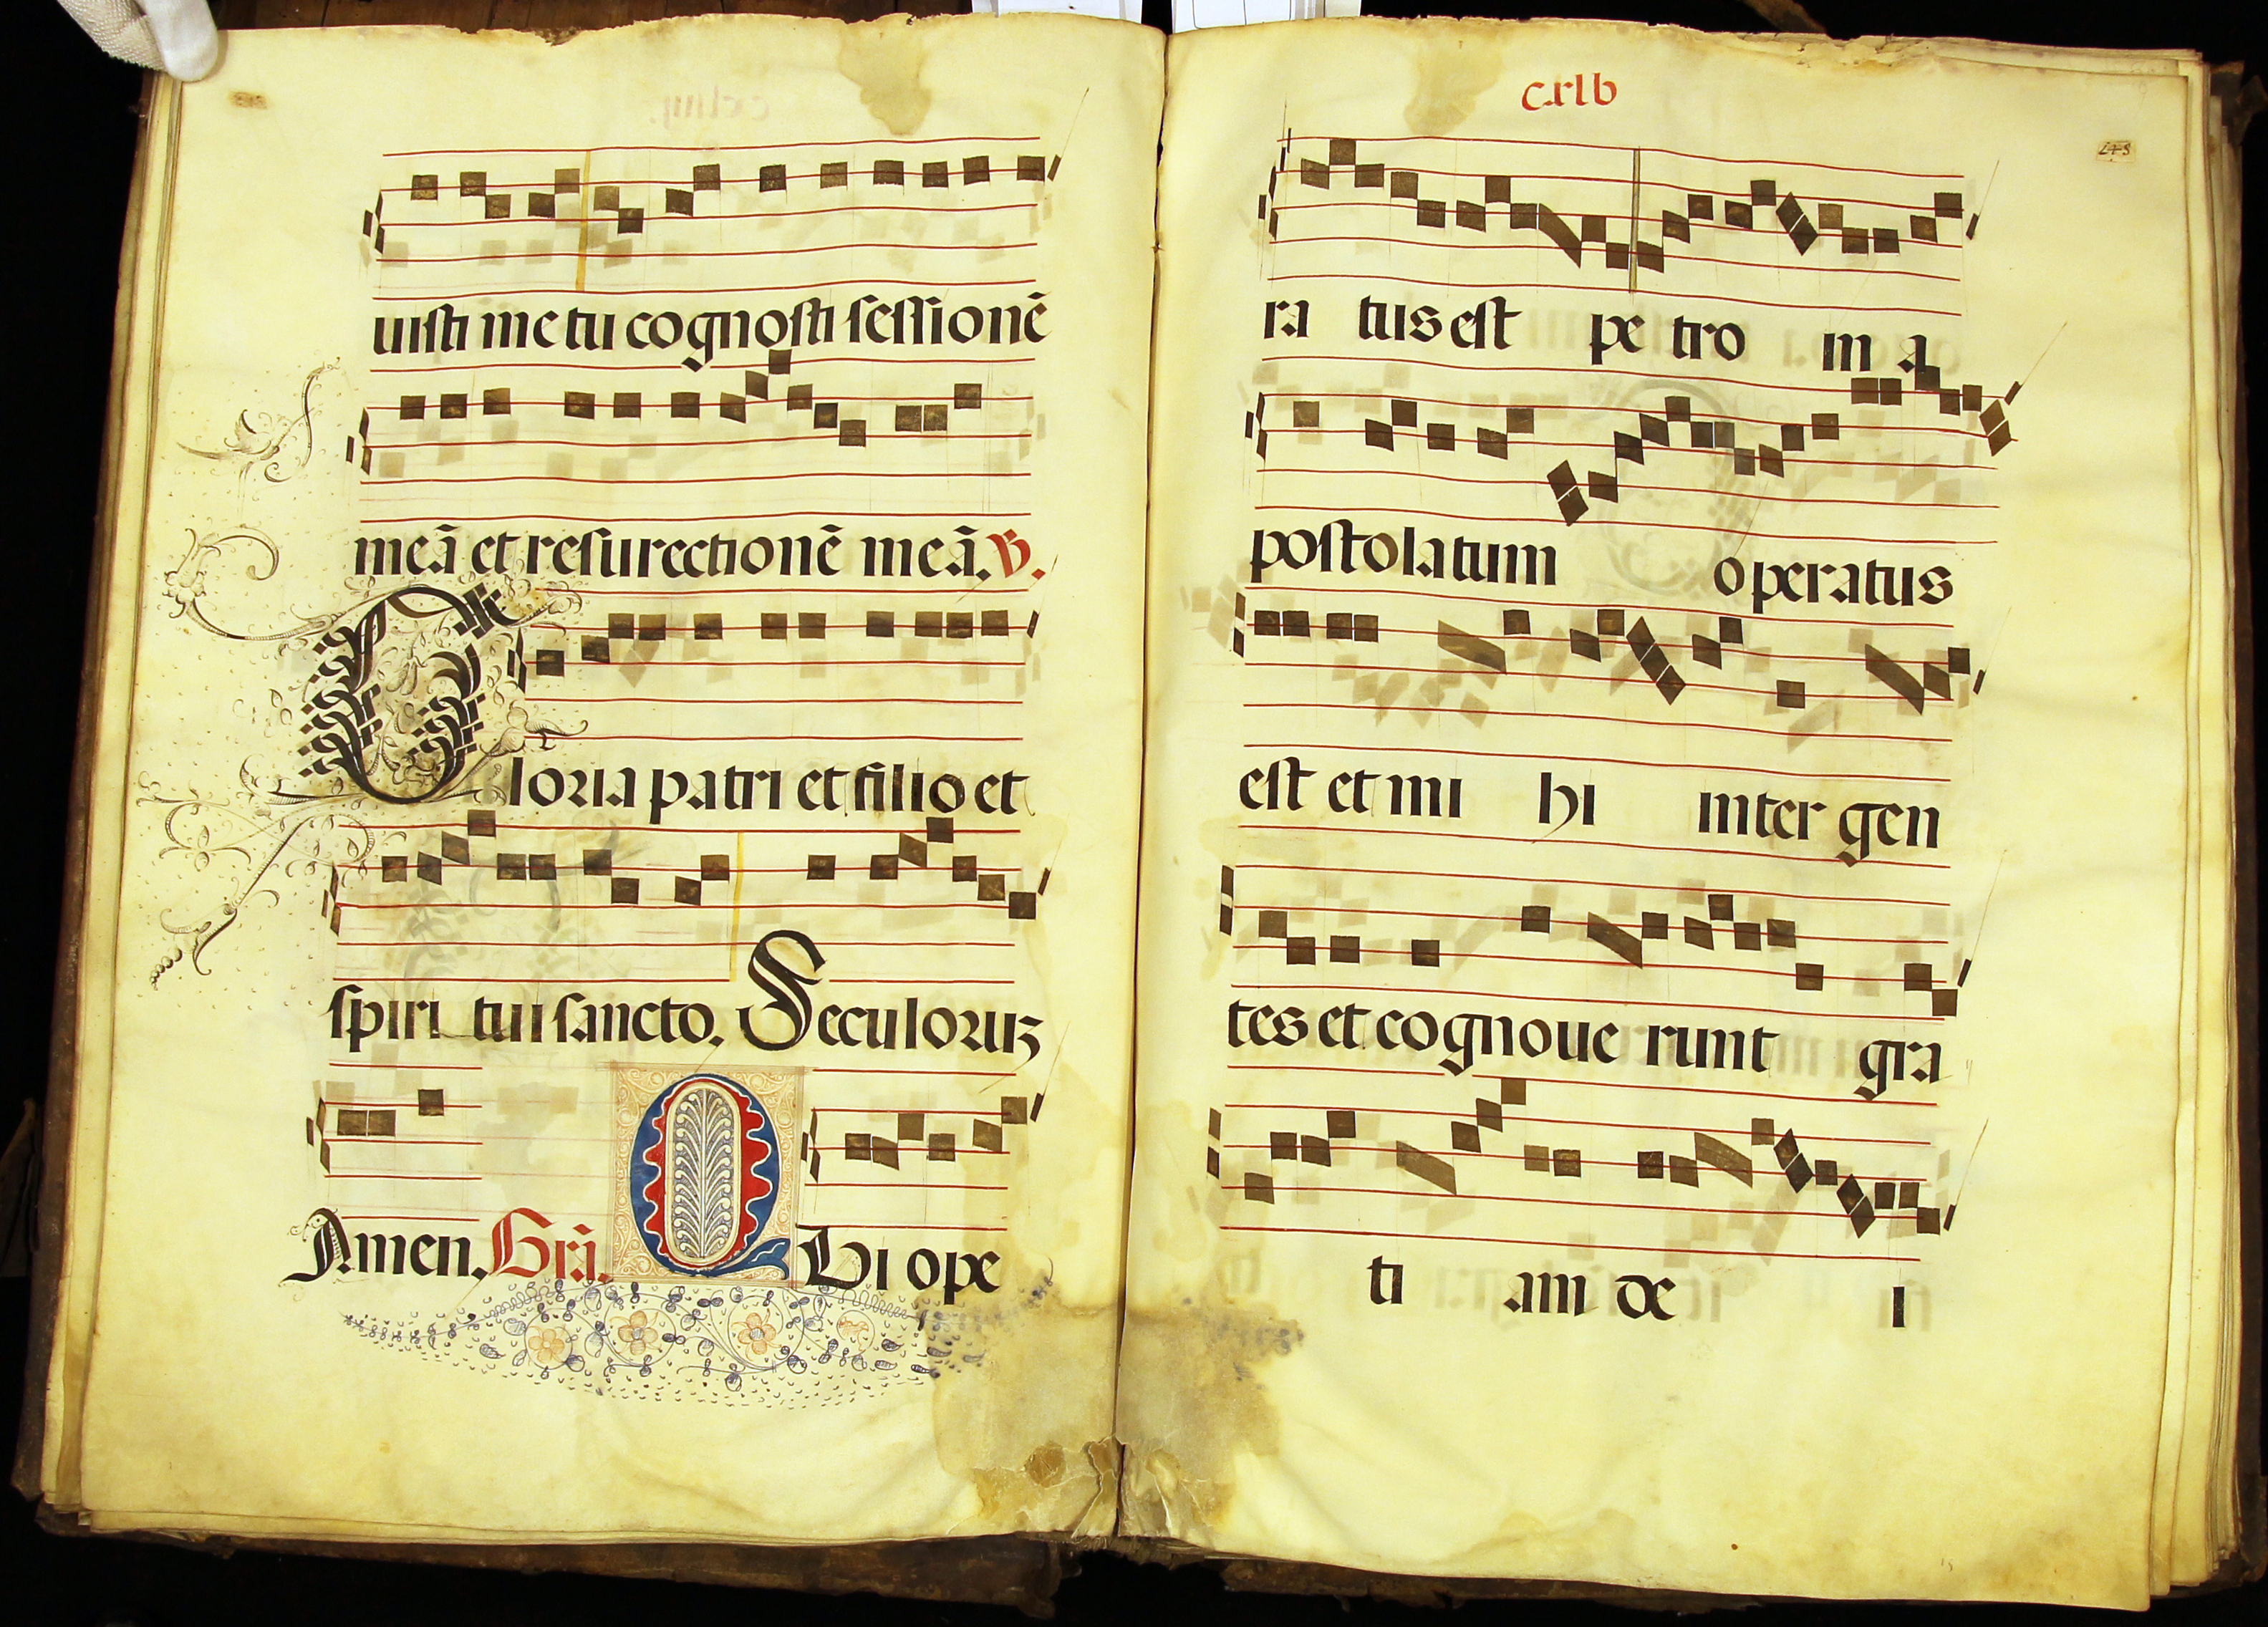 uisti me tu cognosti sessionē
meā et resurectionē meā. V.
Gloria patri et filio et
spiri tui sancto. Seculoruz
Amen. Grā. QUi ope
cxlv
ra tus est pe tro in a
postolatum operatus
est et mi hi inter gen
tes et cognoue runt gra
ti am de i